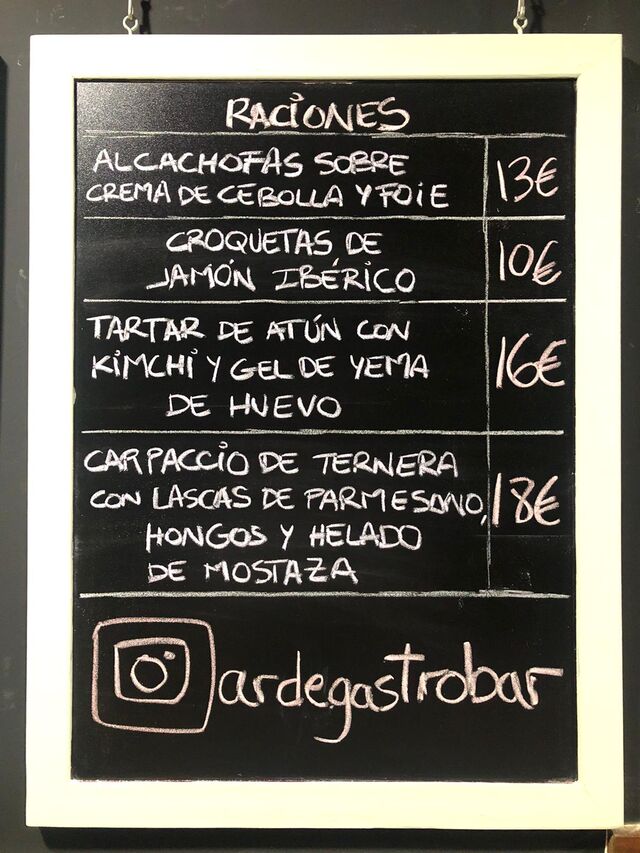 RACIONES
ALCACHOFAS SOBRE
CREMA DE CEBOLLA Y FOIE
13€
CROQUETAS DE
JAMÓN IBÉRICO
10€
TARTAR DE ATÚN CON
KIMCHI Y GEL DE YEMA
DE HUEVO
16€
CARPACCIO DE TERNERA
CON LASCAS DE PARMESANO,
HONGOS Y HELADO
DE MOSTAZA
18€
ardegastrobar